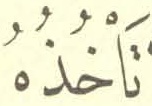 تَأْخُذُهُ